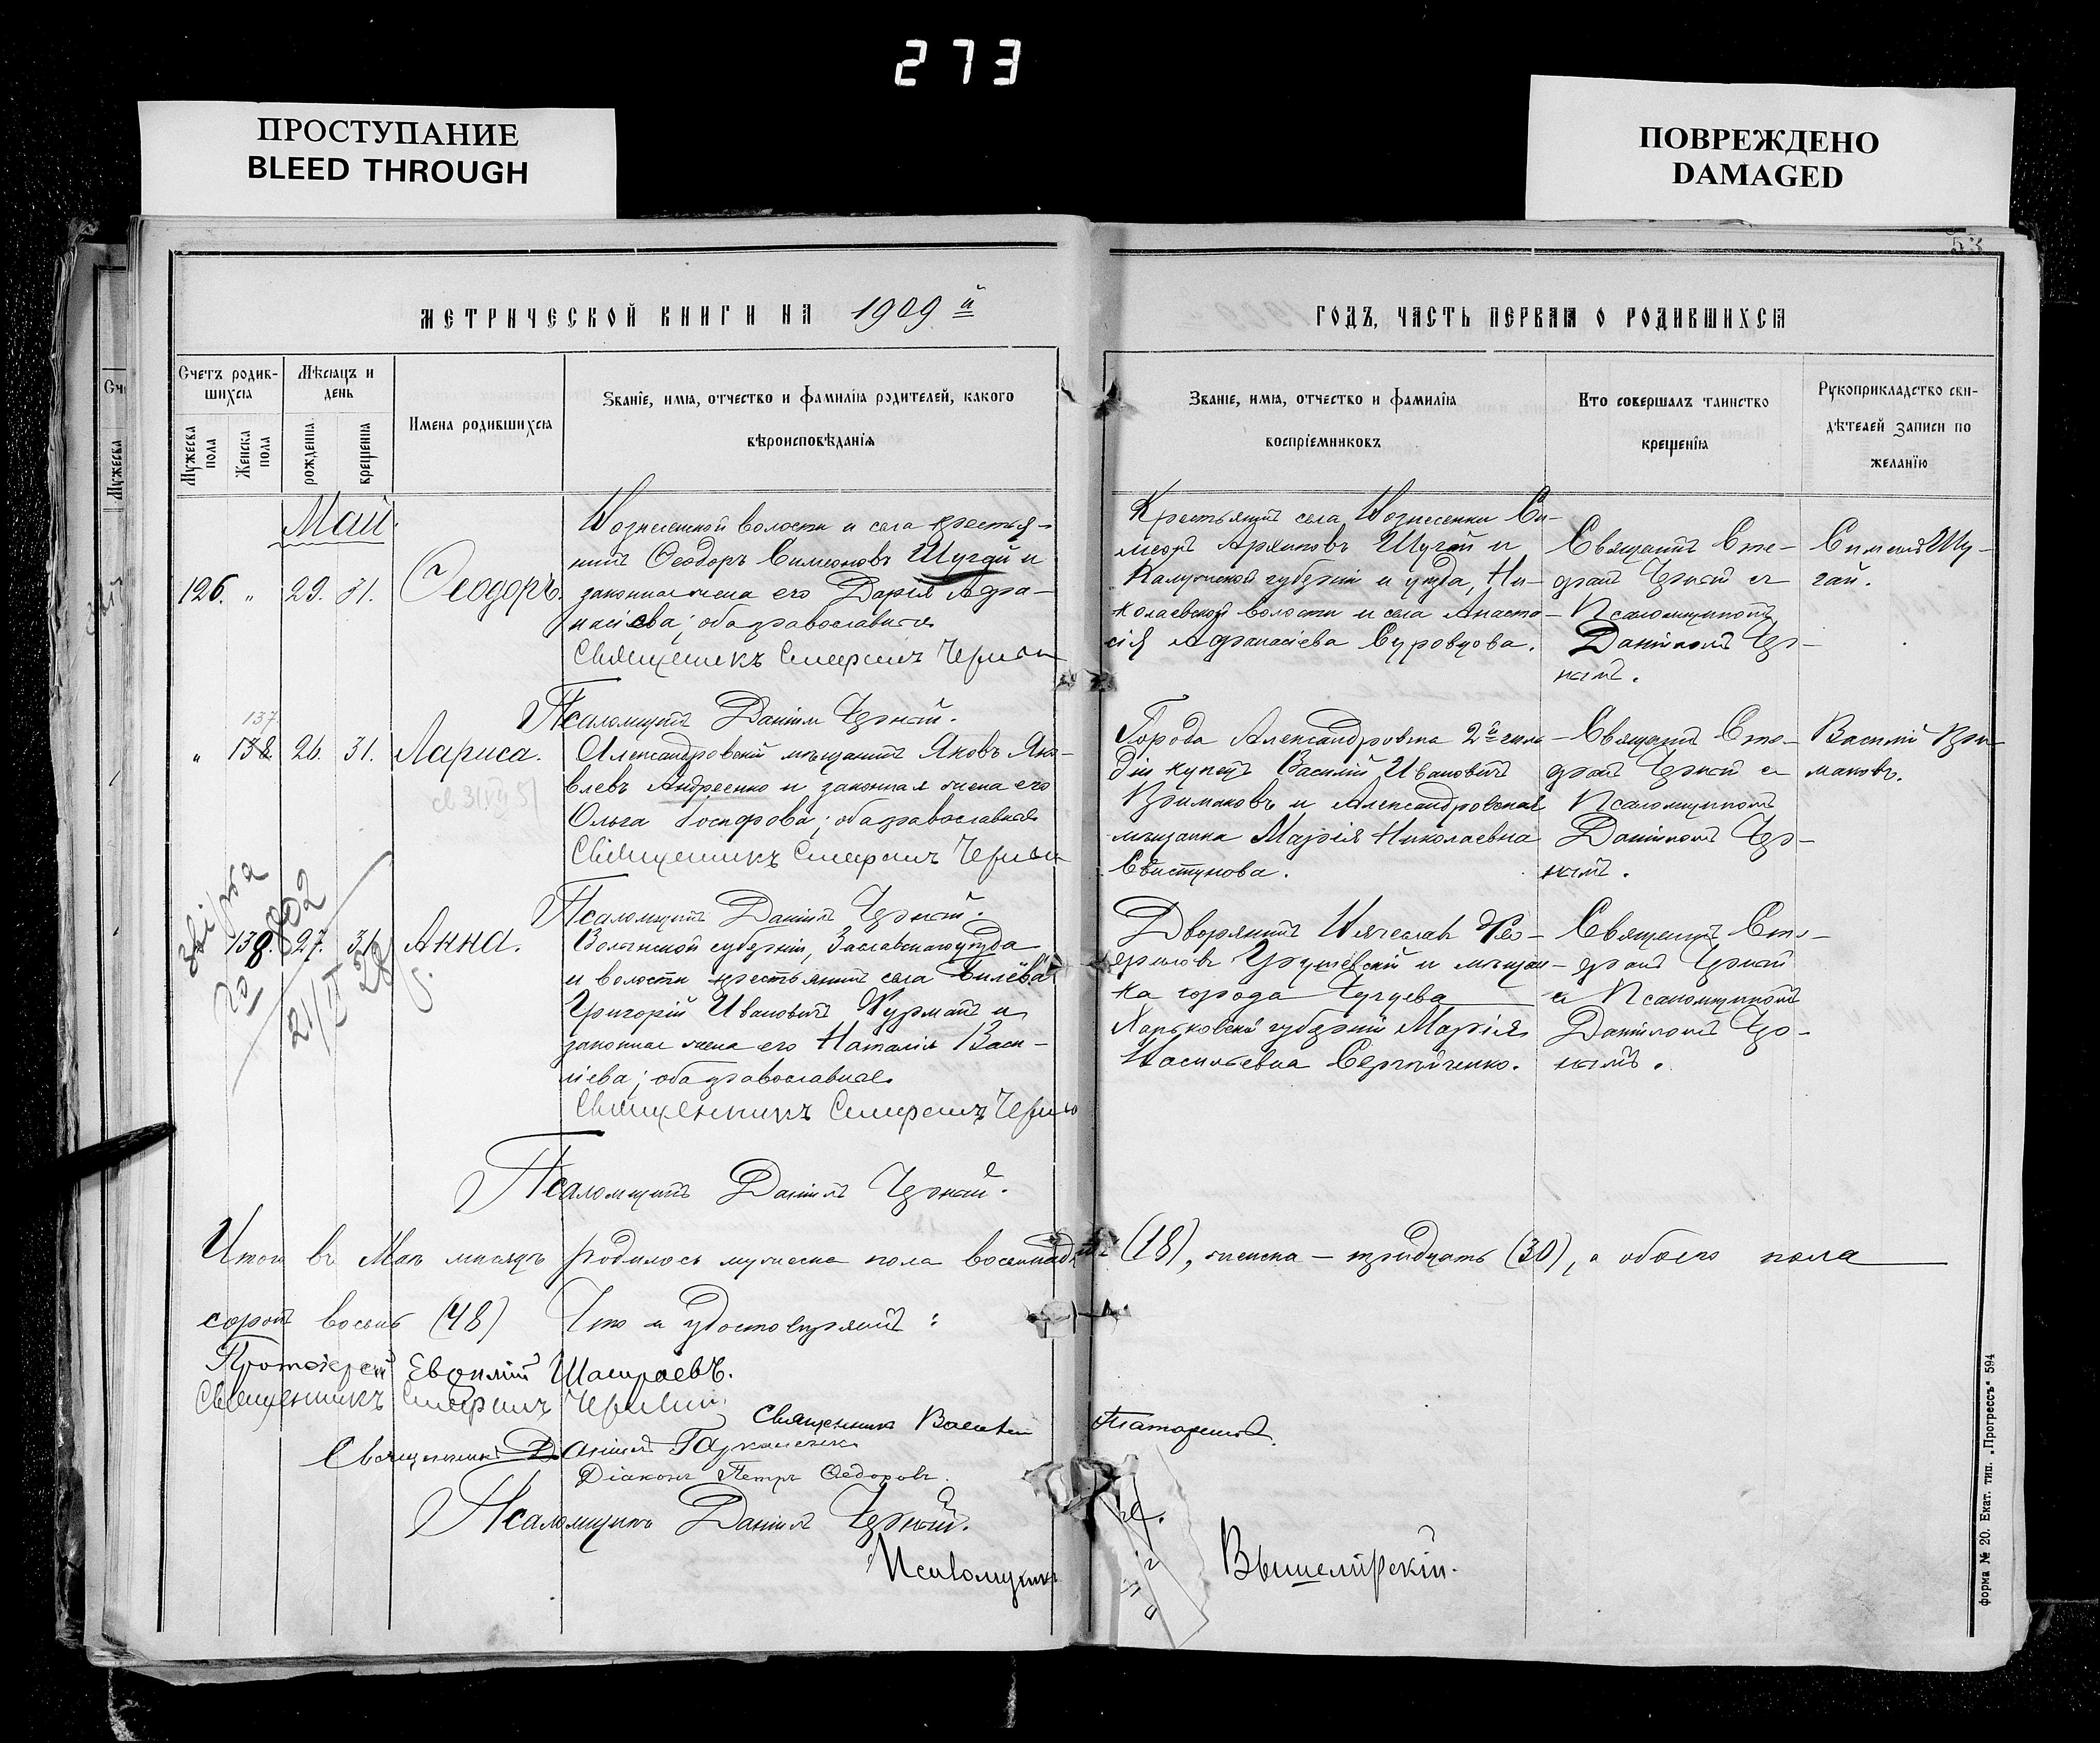 273
ПРОСТУПАНИЕ
BLEED THROUGH
ПОВРЕЖДЕНО
DAMAGED
53
МЕТРИЧЕСКОЙ КНИГИ НА 1909 й
ГОДЪ, ЧАСТЬ ПЕРВАЯ О РОДИВШИХСЯ
Счетъ родив-
шихся
Мужеска пола
Женска пола
Мѣсяцъ и
день
рожденія.
крещенія
Имена родившихся
Званіе, имя, отчество и фамилія родителей, какого
вѣроисповѣданія
Званіе, имя, отчество и фамилія
воспріемниковъ
Кто совершалъ таинство
крещенія
Рукоприкладство сви-
дѣтелей записи по
желанію
Май.
126. " 29. 31. Ѳеодоръ.
Вознесенской волости и села крестья-
нинъ Ѳеодоръ Симеоновъ Шугай и
законная жена его Дарія Афа-
насіева; оба православные
Священникъ Стефанъ Черный
Псаломщикъ Даніилъ Черный.
Крестьянинъ села Вознесенки Си-
меонъ Архиповъ Шугай и
Калужской губерніи и уѣзда, Ни-
колаевской волости и села Анаста-
сія Афанасіева Суровцова.
Священникъ Сте-
фанъ Черный съ
Псаломщикомъ
Даніиломъ Чер-
нымъ.
Симеонъ Шу-
гай.
137.
" 138. 26. 31. Лариса.
Александровскій мѣщанинъ Яковъ Яко-
влевъ Андреенко и законная жена его
Ольга Іосифова; оба православные
Священникъ Стефанъ Черный
Псаломщикъ Даніилъ Черный.
Города Александровска 2й гиль-
діи купецъ Василій Ивановичъ
Примаковъ и Александровская
мѣщанка Марія Николаевна
Свистунова.
Священникъ Сте-
фанъ Черный съ
Псаломщикомъ
Даніиломъ Чер-
нымъ.
Василій При-
маковъ.
138. 27. 31. Анна.
21/II 28
Волынской губерніи, Заславскаго уѣзда
и волости крестьянинъ села Билёва
Григорій Ивановичъ Фурманъ и
законная жена его Наталія Васи-
ліева; оба православные.
Священникъ Стефанъ Черный
Псаломщикъ Даніилъ Черный.
Дворянинъ Вячеславъ
и мѣщан-
ка города Чугуева
Харьковской губерніи Марія
Васильевна Сергійченко.
Священникъ Сте-
фанъ Черный
съ Псаломщикомъ
Даніиломъ Чер-
нымъ.
Итого въ Маѣ мѣсяцѣ родилось мужеска пола восемнадцать (18), женска – тридцать (30), а обоего пола
сорокъ восемь (48) Что и удостовѣряемъ:
Протоіерей Евѳимій
Священникъ Стефанъ Черный
Священникъ Василій Татариновъ.
Священникъ Даніилъ
Діаконъ Петръ Ѳедоровъ.
Псаломщикъ Даніилъ Черный.
Псаломщикъ
форма № 20. Екат. тип. „Прогрессъ“ 594